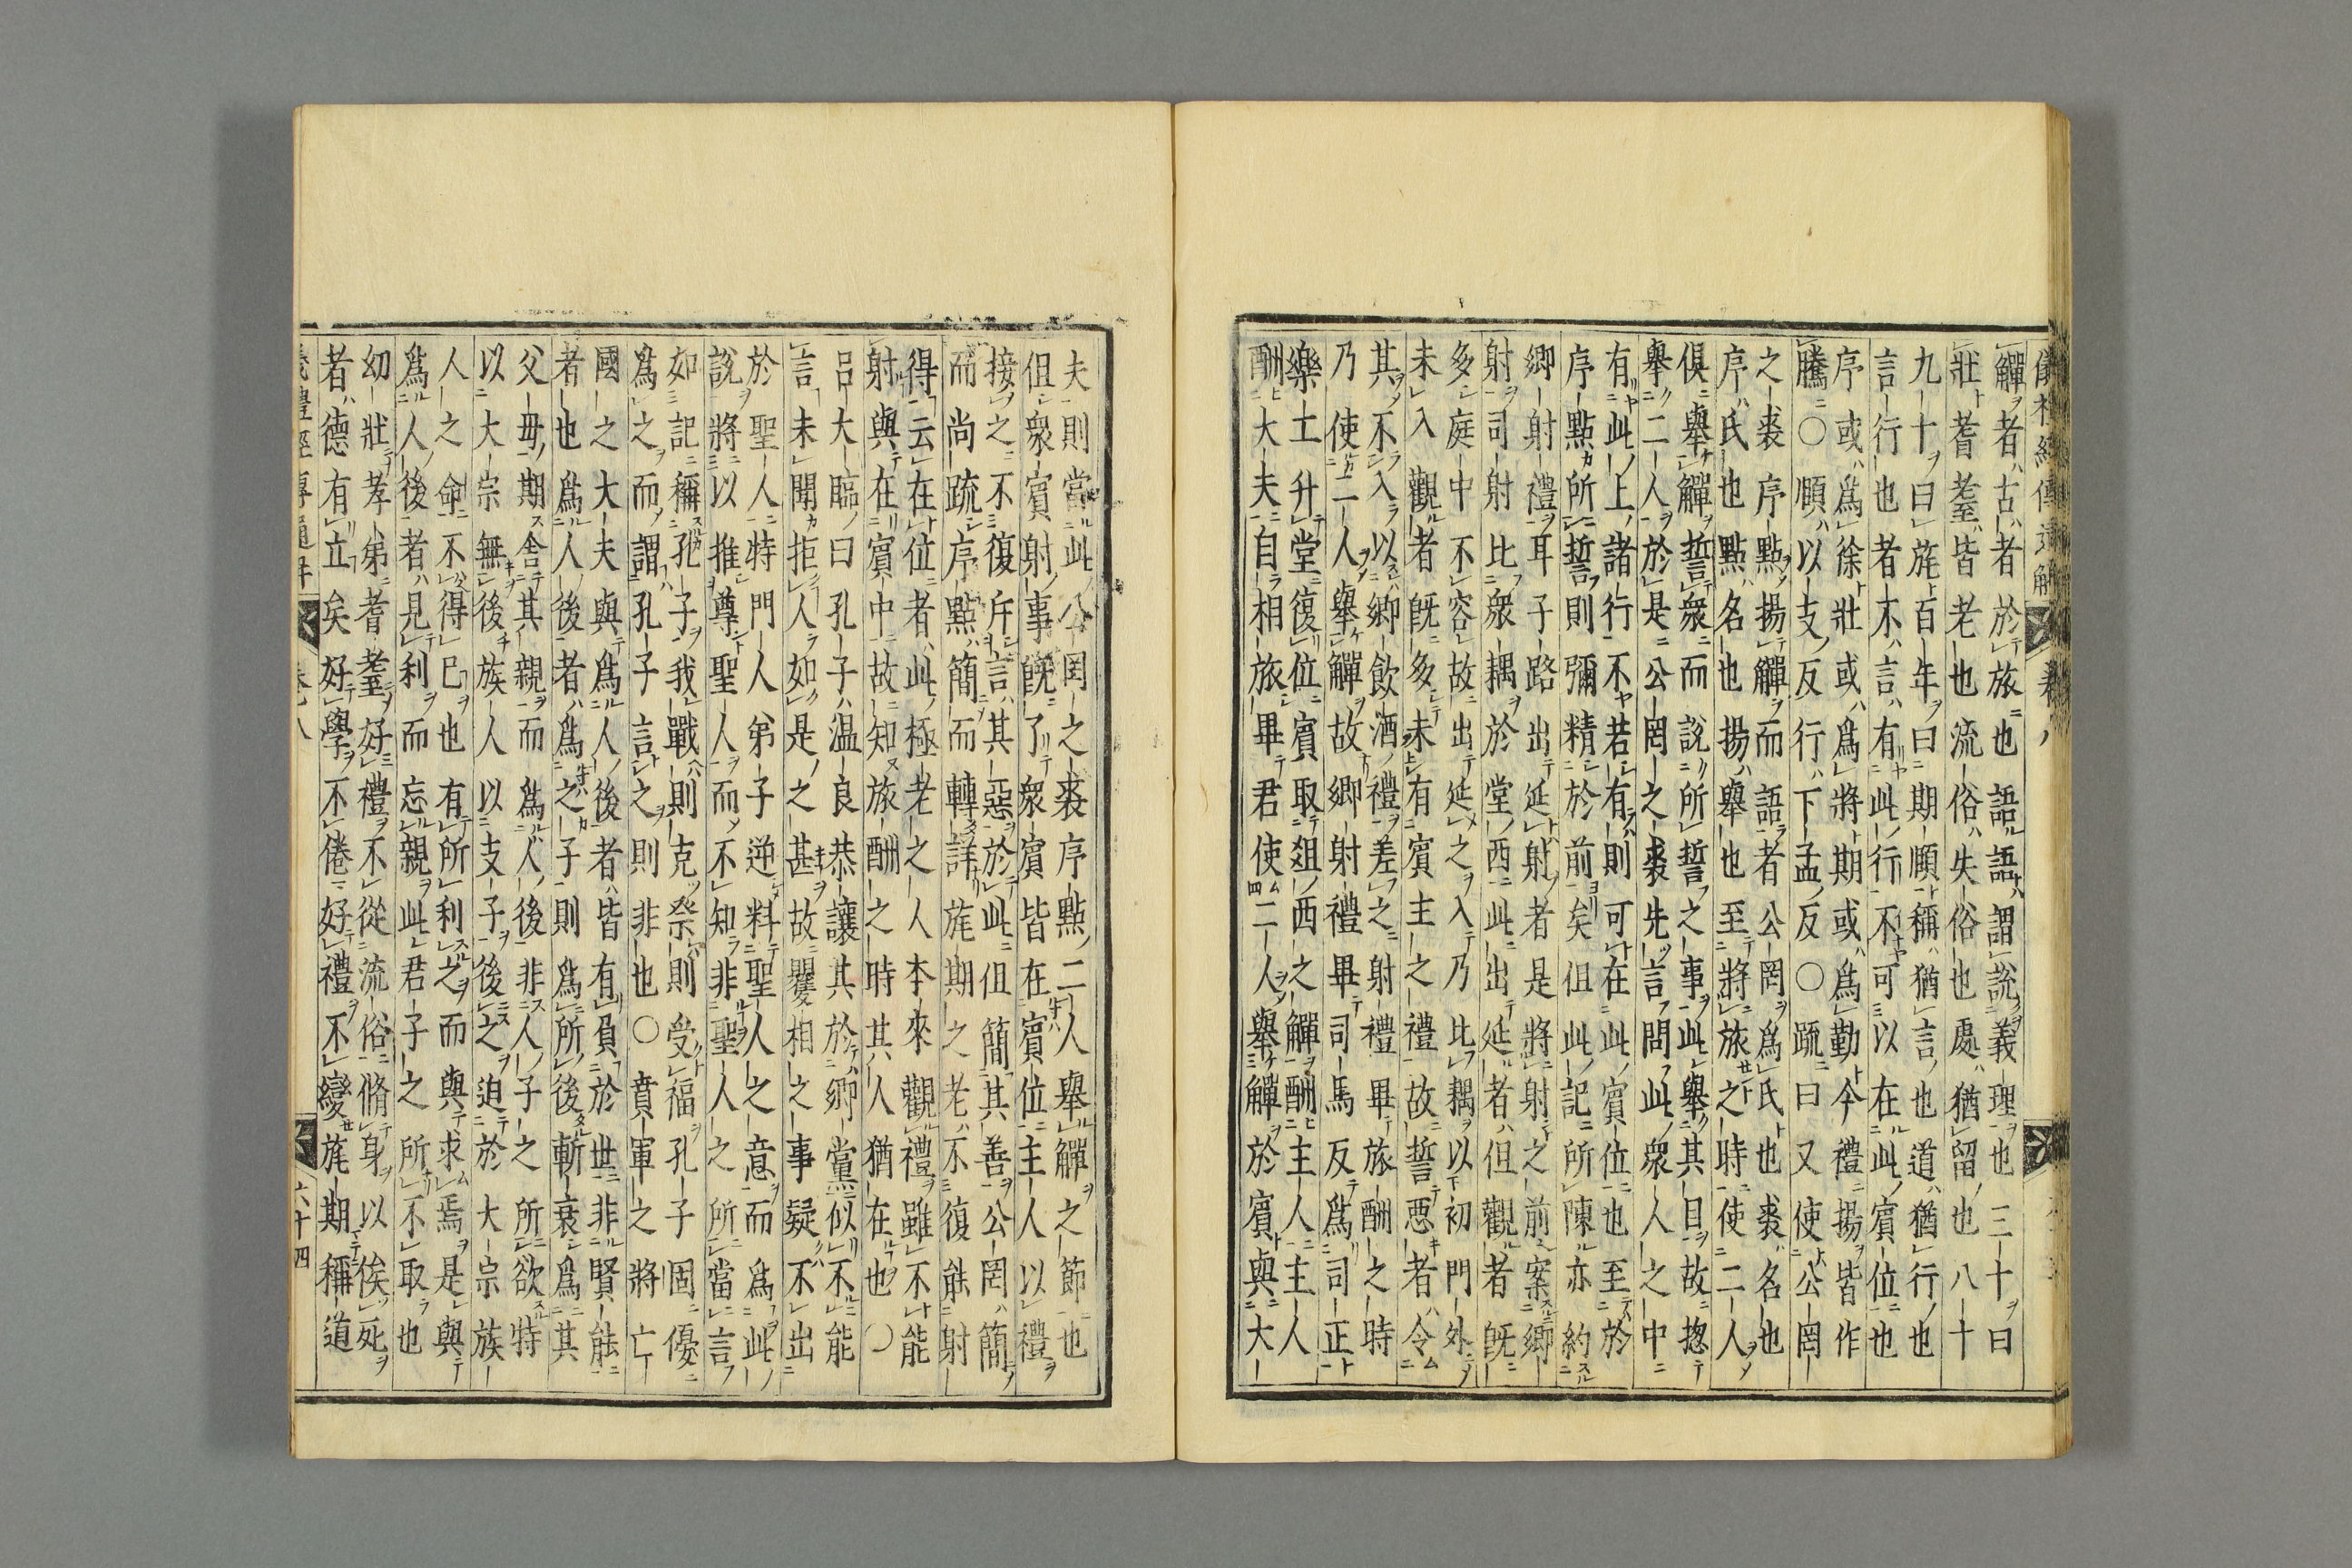 儀禮經傳通解 卷八
觶者古者於旅也語語謂說義理也三十曰
壯耆耋皆老也流俗失俗也處猶留也八十
九十曰旄百年曰期頤稱猶言也道猶行也
言行也者不言有此行不可以在此賓位也
序或爲徐壯或爲將期或爲勤今禮揚皆作
騰〇頤以支反行下孟反〇疏曰又使公罔
之裘序點揚觶而語者公罔爲氏也裘名也
序氏也點名也揚舉也至將旅之時使二人
俱舉觶誓衆而說所誓之事此舉其目故惣
舉二人於是公罔之裘先言問此衆人之中
有此上諸行不若有則可在此賓位也至於
序點所誓則彌精於前矣但此記所陳亦約
鄉射禮耳子路出延射者是將射之前案鄉
射司射比衆耦於堂西此出延者但觀者旣
多庭中不容故出延之入乃比耦以初門外
未入觀者旣多未有賓主之禮故誓惡者令
其不入以鄉飲酒禮差之射禮畢旅酬之時
乃使二人舉觶故鄉射禮畢司馬反爲司正
樂工升堂復位賓取俎西之觶酬主人主人
酬大夫自相旅畢君使二人舉觶於賓與大
夫則當此公罔之裘序點二人舉觶之節也
但衆賓射事旣了衆賓皆在賓位主人以禮
接之不復斥言其惡於此但簡其善公罔簡
而尚疏序點簡而轉詳旄期之老不復能射
得云在位者此極老之人本來觀禮雖不能
射與在賓中故知旅酬之時其人猶在也〇
呂大臨曰孔子温良恭讓其於鄉黨似不能
言未聞拒人如是之甚故矍相之事疑不出
於聖人特門人弟子逆料聖人之意而爲此
說將以推尊聖人而不知非聖人之所當言
如記稱孔子我戰則克祭則受福孔子固優
爲之而謂孔子言之則非也〇賁軍之將亡
國之大夫與爲人後者皆有負於世非賢能
者也爲人後者爲之子則爲所後斬衰爲其
父母期舍其親而爲人後非人子之所欲特
以大宗無後族人以支子後之迫於大宗族
人之命不得已也有所利之而與求焉是與
爲人後者見利而忘親此君子之所不取也
幼壯孝弟耆耋好禮不從流俗脩身以俟死
者德有立矣好學不倦好禮不變旄期稱道
六十四